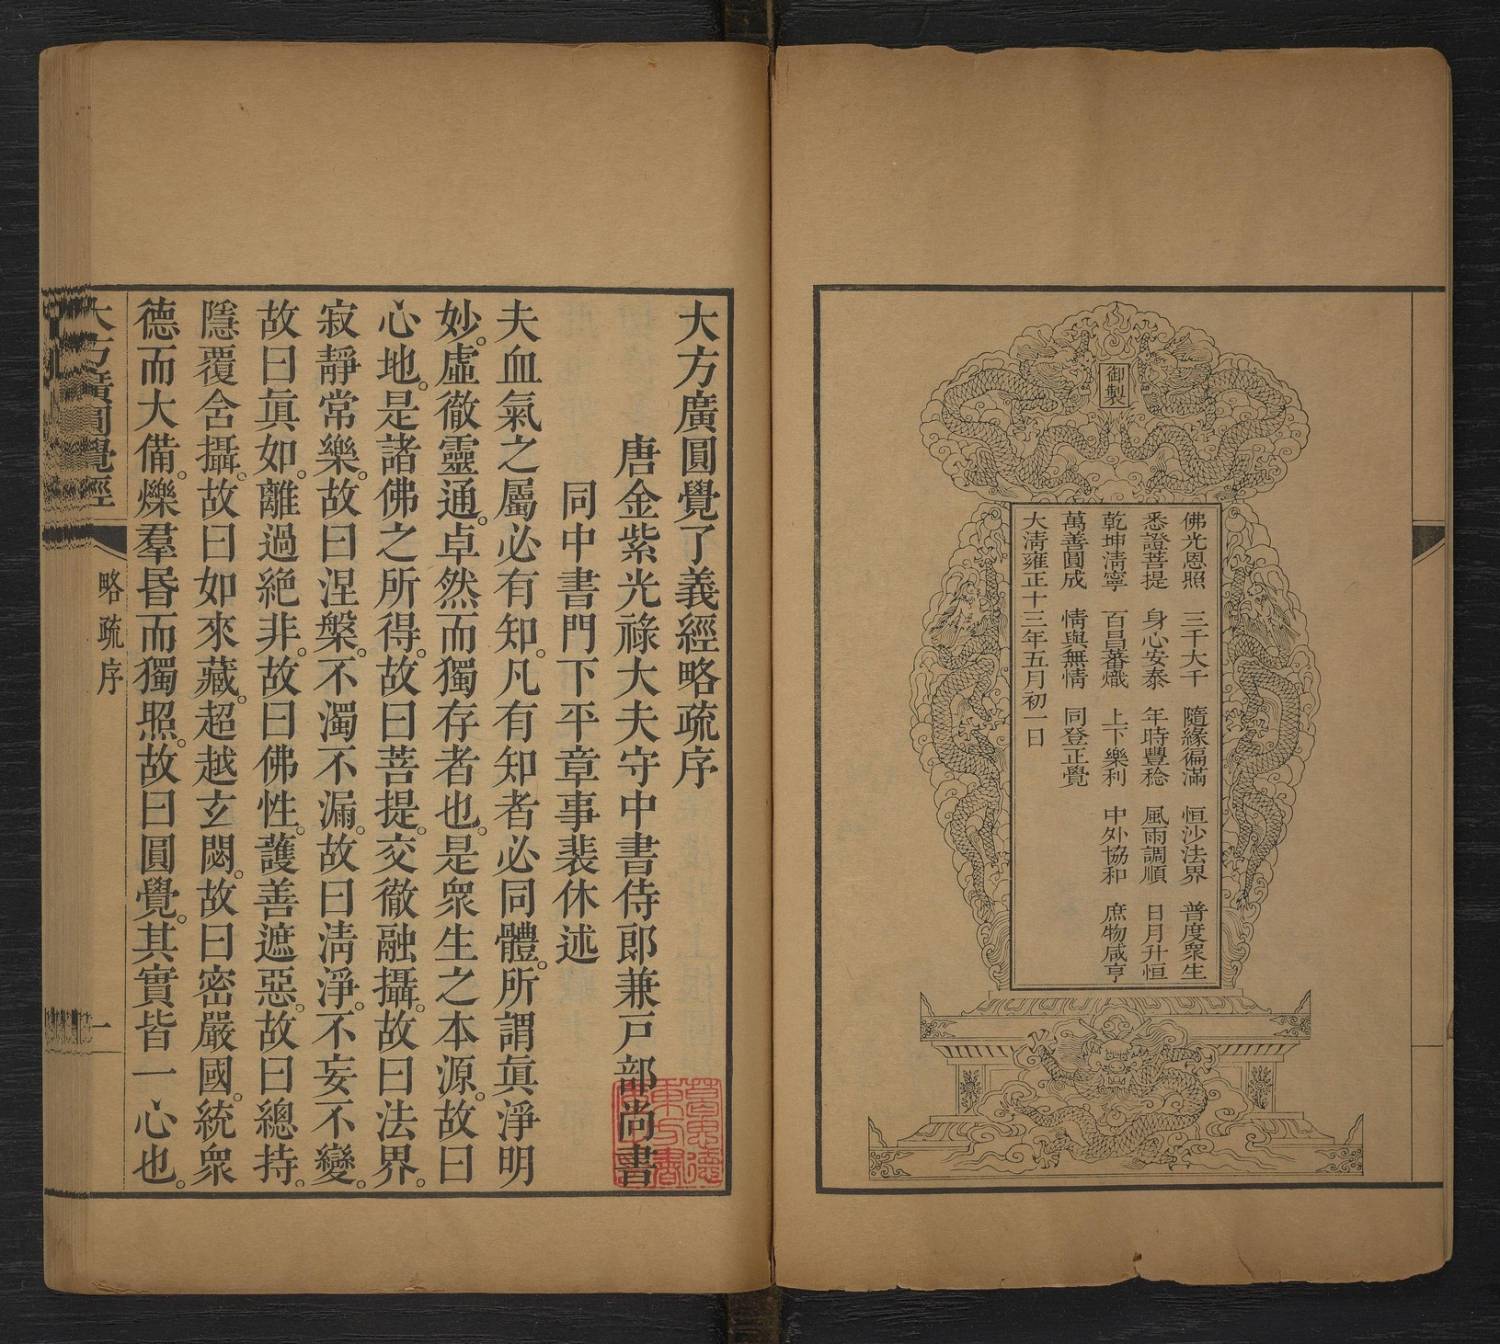 御製
佛光恩照　三千大千　隨緣徧滿　恒沙法界　普度衆生
悉證菩提　身心安泰　年時豐稔　風雨調順　日月升恒
乾坤淸寧　百昌蕃熾　上下樂利　中外協和　庶物咸亨
萬善圓成　情與無情　同登正覺
大淸雍正十三年五月初一日
大方廣圓覺了義經略疏序
唐金紫光祿大夫守中書侍郎兼戸部尚書
同中書門下平章事裴休述
夫血氣之屬必有知。凡有知者必同體。所謂眞淨明
妙。虛徹靈通。卓然而獨存者也。是衆生之本源。故曰
心地。是諸佛之所得。故曰菩提。交徹融攝。故曰法界。
寂靜常樂。故曰涅槃。不濁不漏。故曰淸淨。不妄不變。
故曰眞如。離過絕非。故曰佛性。護善遮惡。故曰總持。
隱覆含攝。故曰如來藏。超越玄閟。故曰密嚴國。統衆
德而大備。爍羣昏而獨照。故曰圓覺。其實皆一心也。
大方廣圓覺經
略疏序
一